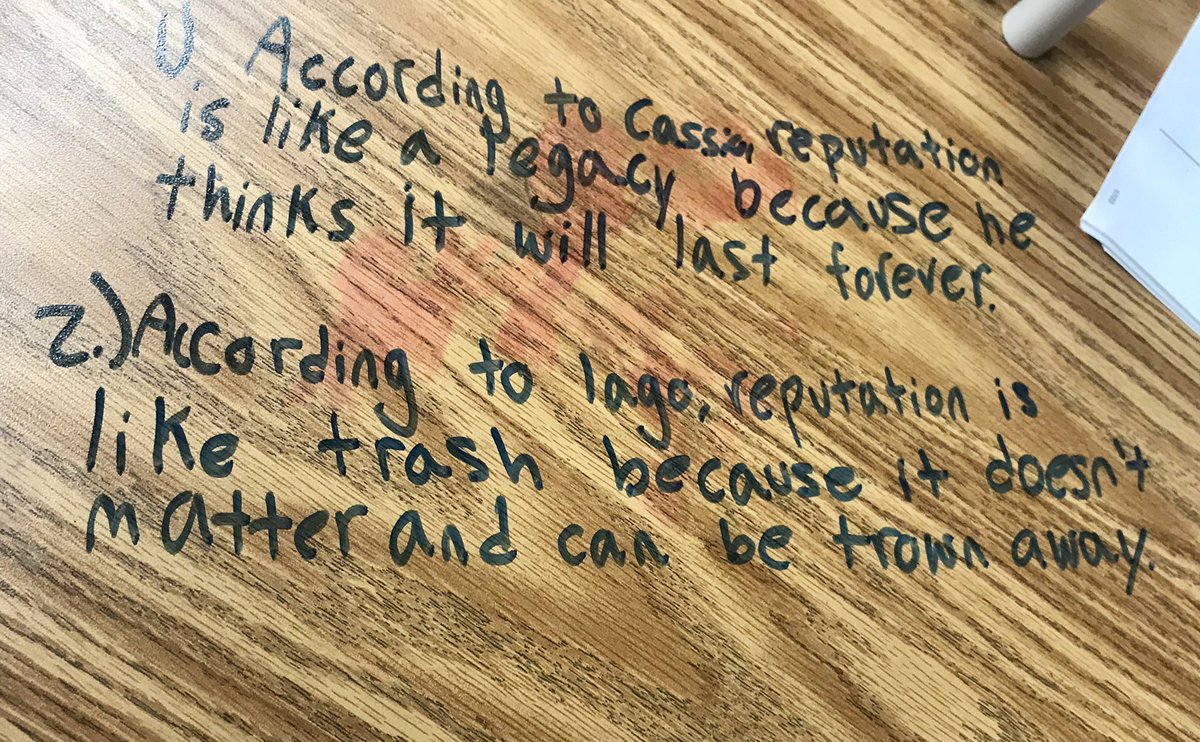 1) According to Cassio, reputation
is like a legacy, because he
thinks it will last forever.
2.) According to Iago, reputation is
like trash because it doesn't
matter and can be trown away.